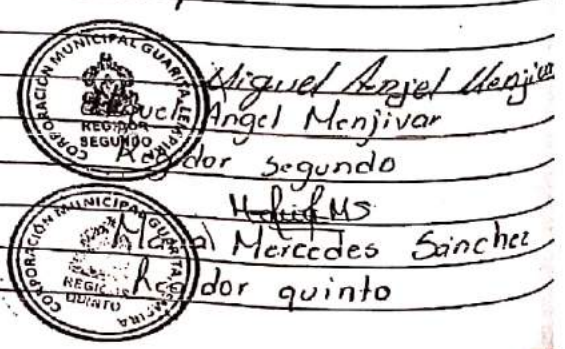 CORPORACIÓN MUNICIPAL GUARITA, LEMPIRA
REGIDOR
SEGUNDO
Miguel Angel Menjivar
Miguel Angel Menjivar
Regidor Segundo
MS
CORPORACIÓN MUNICIPAL GUARITA LEMPIRA
REGIDOR
QUINTO
Mercedes Sánchez
Regidor quinto